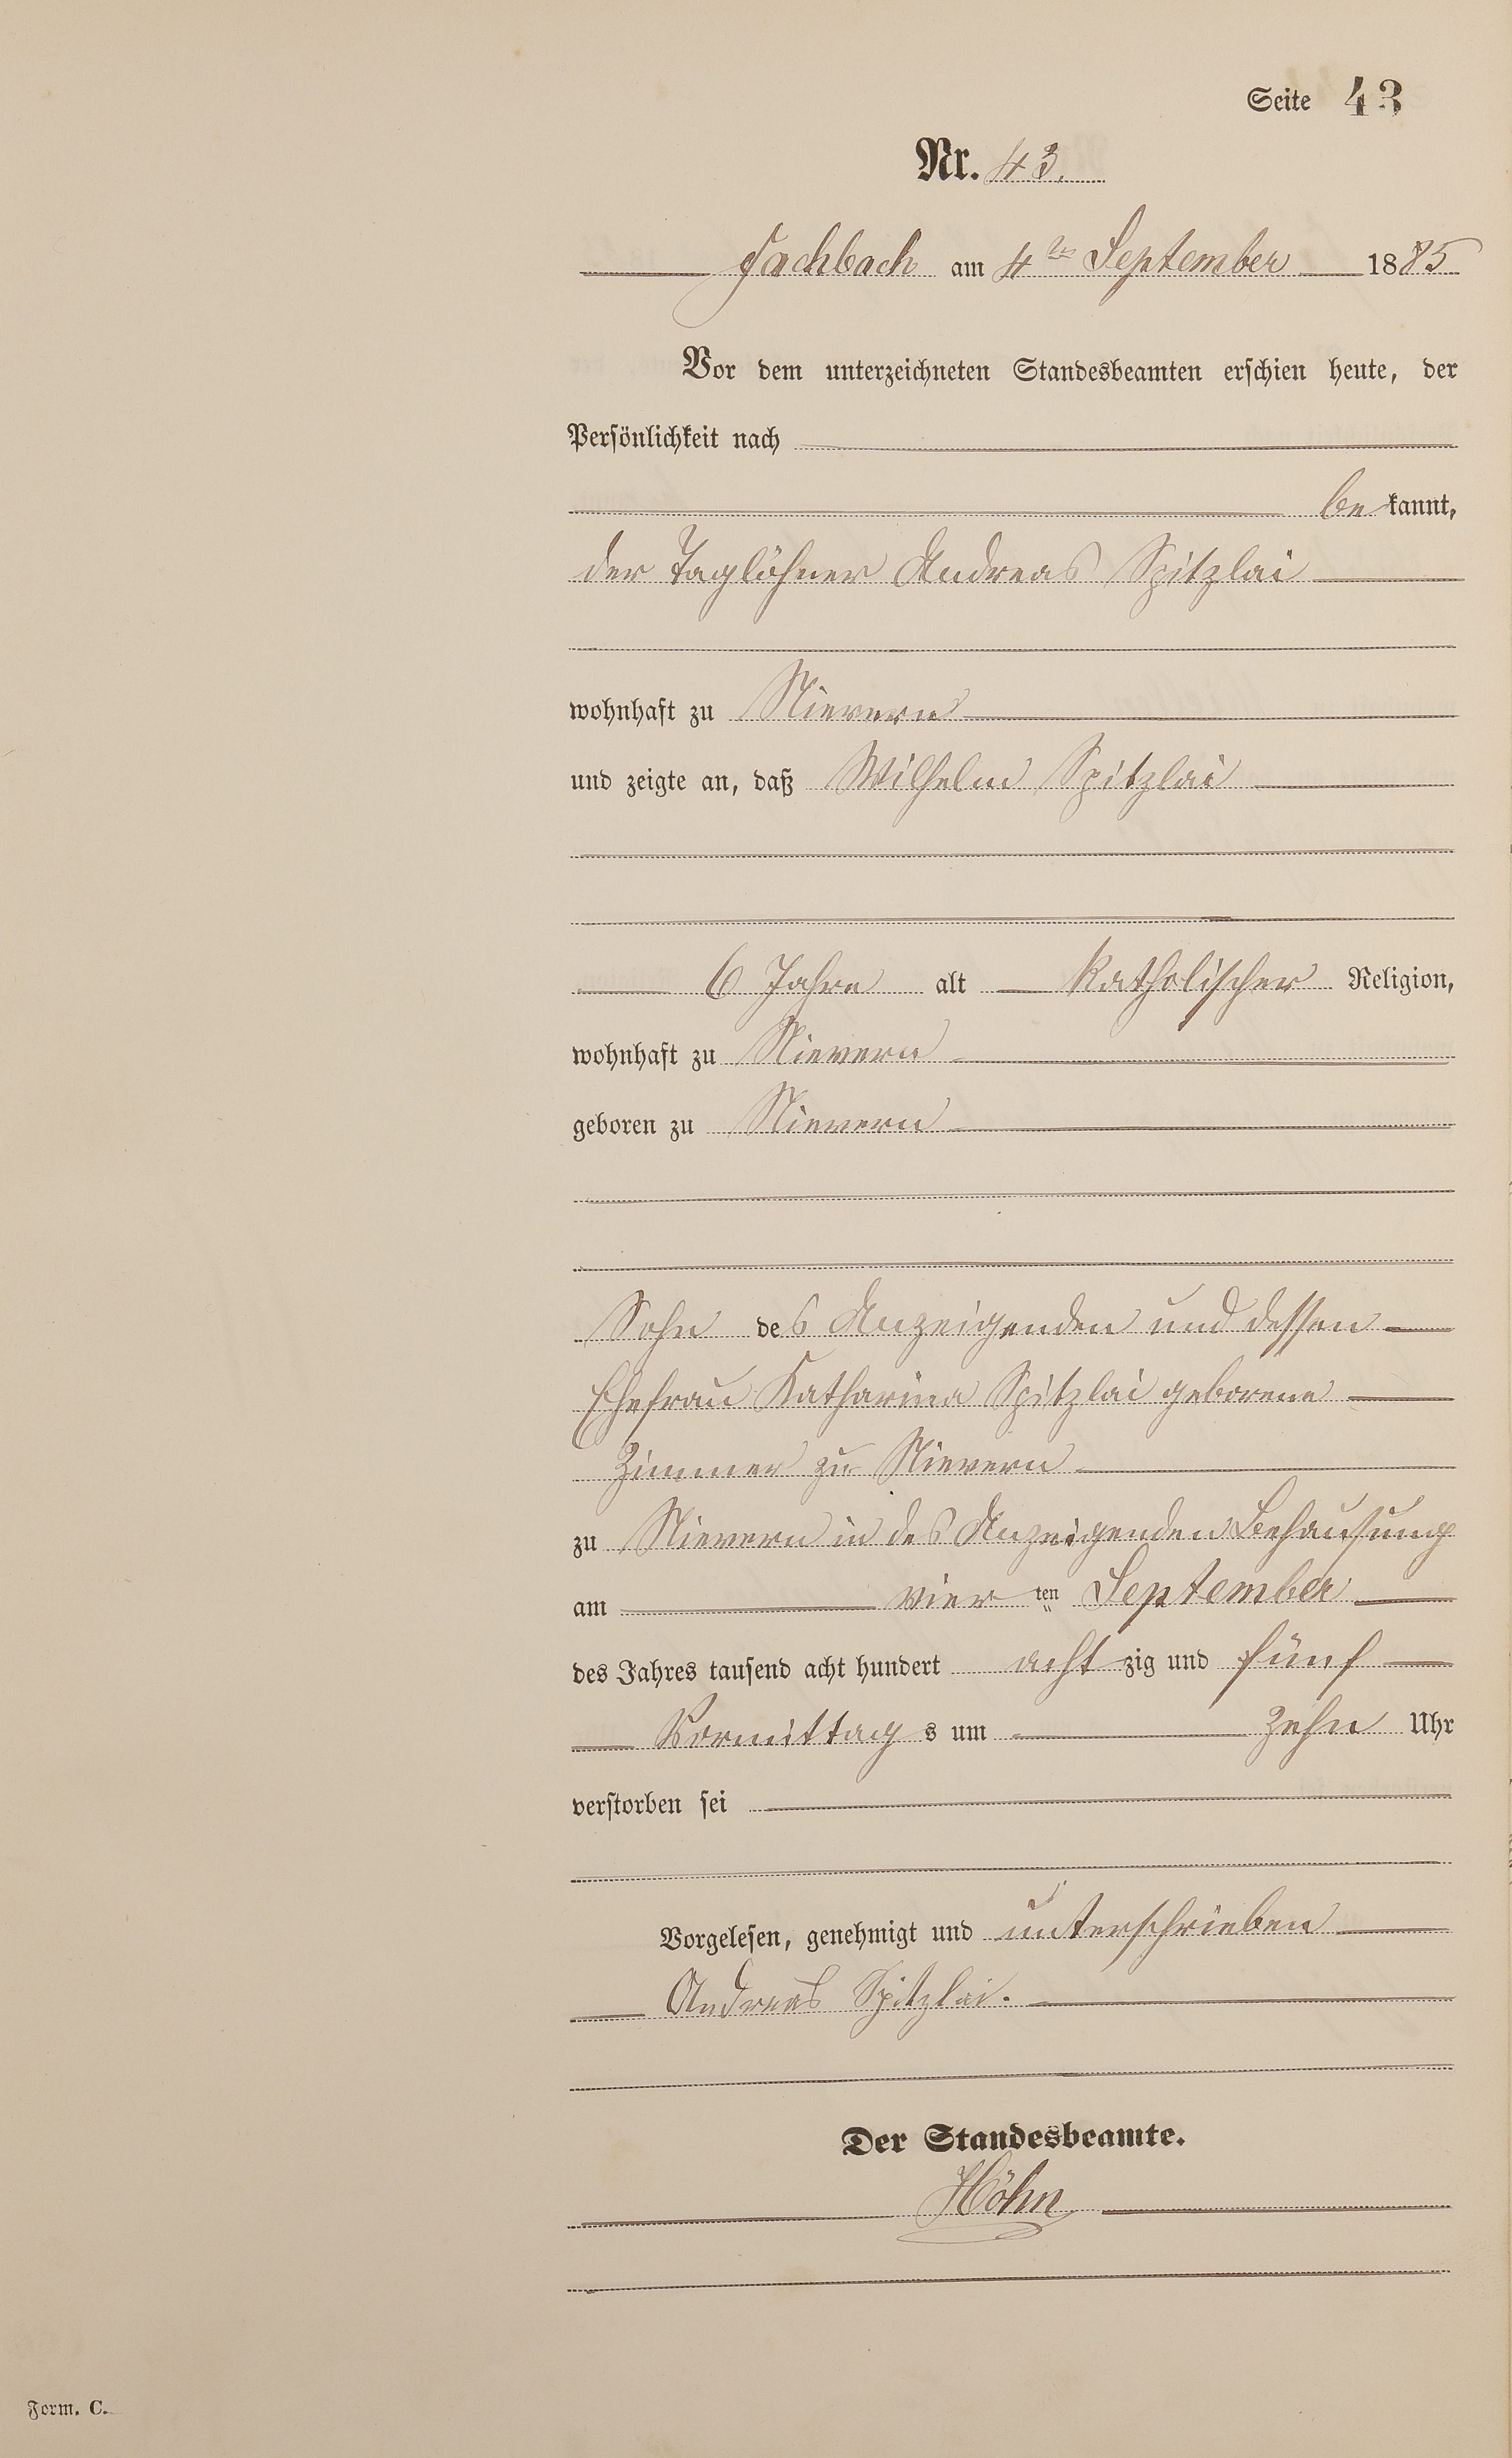 Seite 43
Nr. 43.
Fachbach am 4ten September 1885
Vor dem unterzeichneten Standesbeamten erschien heute, der
Persönlichkeit nach
bekannt,
der Taglöhner Andreas Spitzlai
wohnhaft zu Nievern
und zeigte an, daß Wilhelm Spitzlai
6 Jahre alt katholischer Religion,
wohnhaft zu Nievern
geboren zu Nievern
Sohn des Anzeigenden und dessen
Ehefrau Katharina Spitzlai geborene
Zimmer zu Nievern
zu Nievern in des Anzeigenden Behausung
am vierten September
des Jahres tausend acht hundert achtzig und fünf
Vormittags um zehn Uhr
verstorben sei
Vorgelesen, genehmigt und unterschrieben
Andreas Spitzlai.
Der Standesbeamte.
Höhn
Form. C.